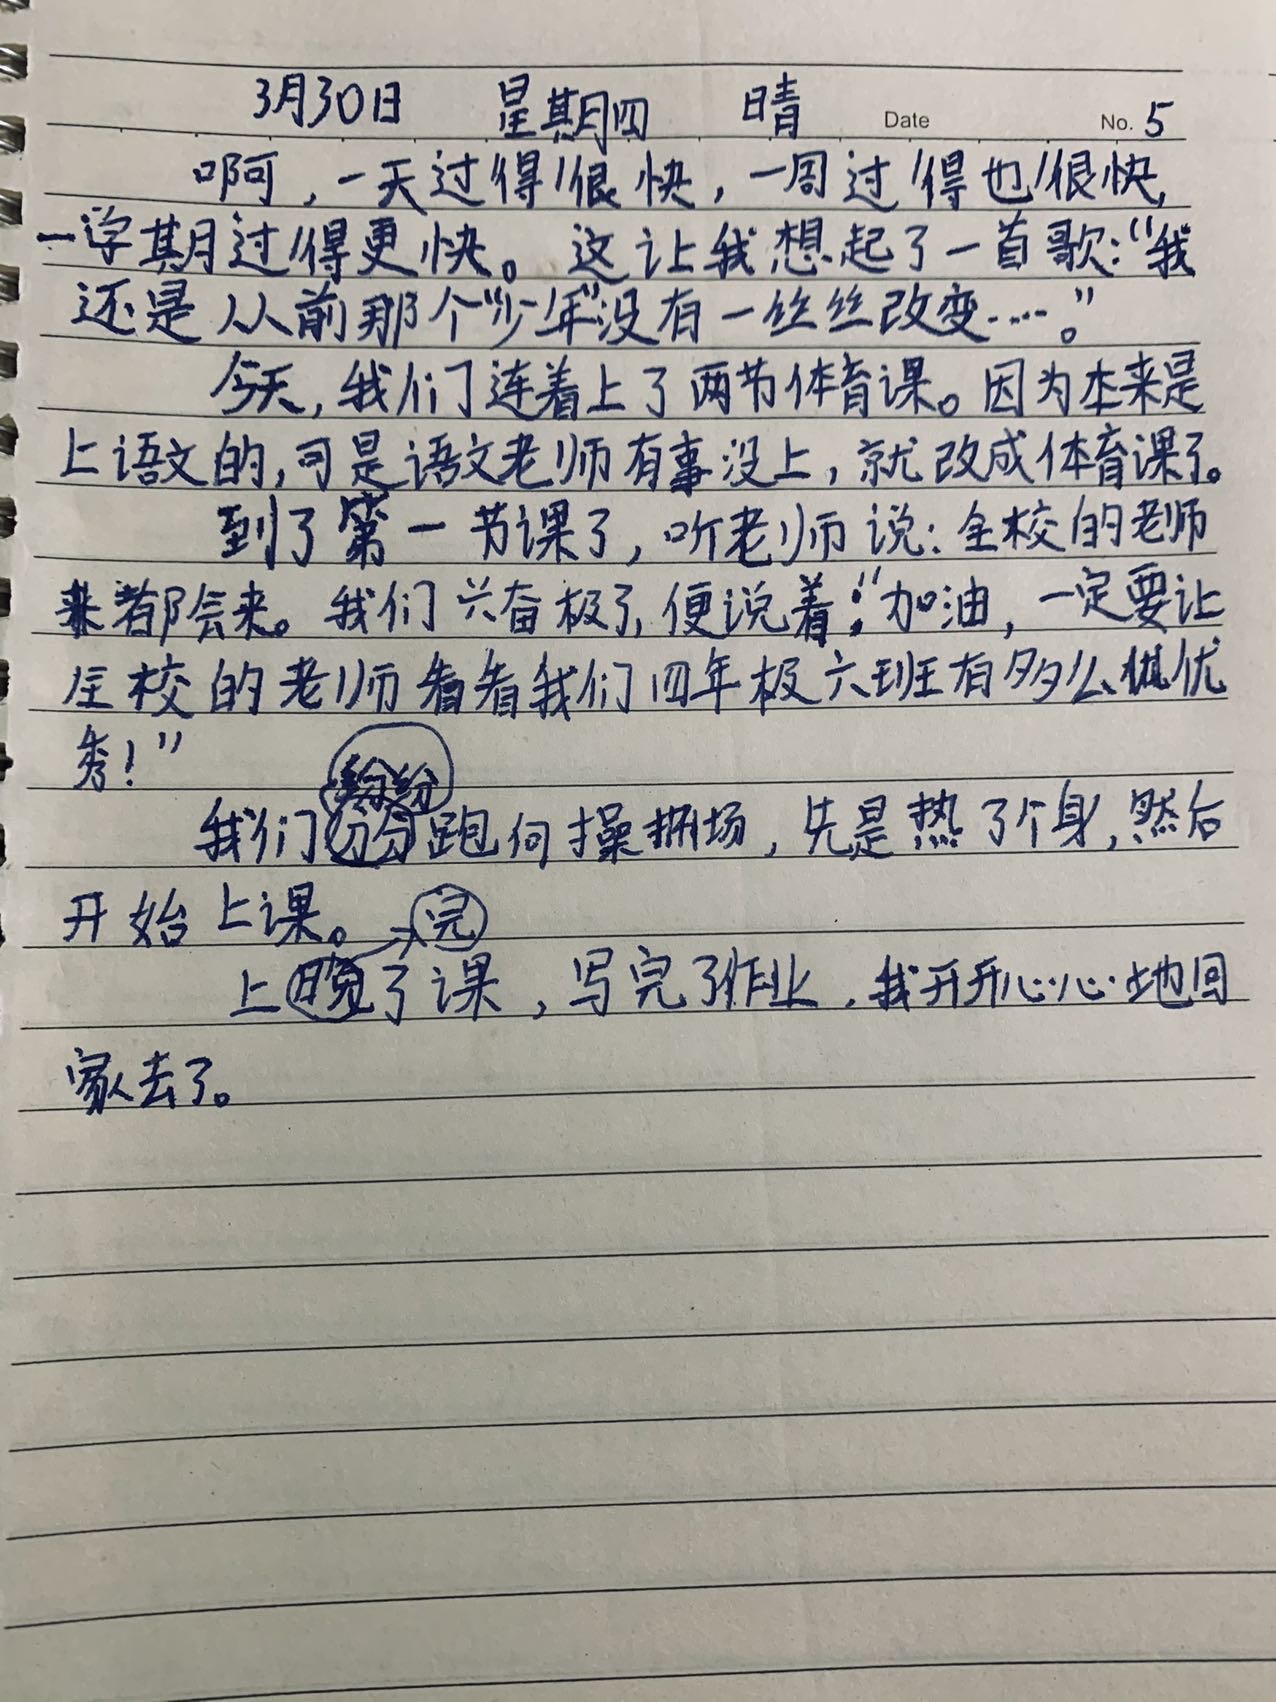 3月30日 星期四 晴 Date No. 5
啊，一天过得很快，一周过得也很快，
一学期过得更快。这让我想起了一首歌：“我
还是从前那个“少年”没有一丝丝改变……。”
今天，我们连着上了两节体育课。因为本来是
上语文的，可是语文老师有事没上，就改成体育课了。
到了第一节课了，听老师说：全校的老师
都会来。我们兴奋极了，便说着：“加油，一定要让
全校的老师看看我们四年极六班有多么优
秀！”
纷纷
我们分分跑向操场，先是热了个身，然后
开始上课。 完
上晚了课，写完了作业，我开开心心地回
家去了。